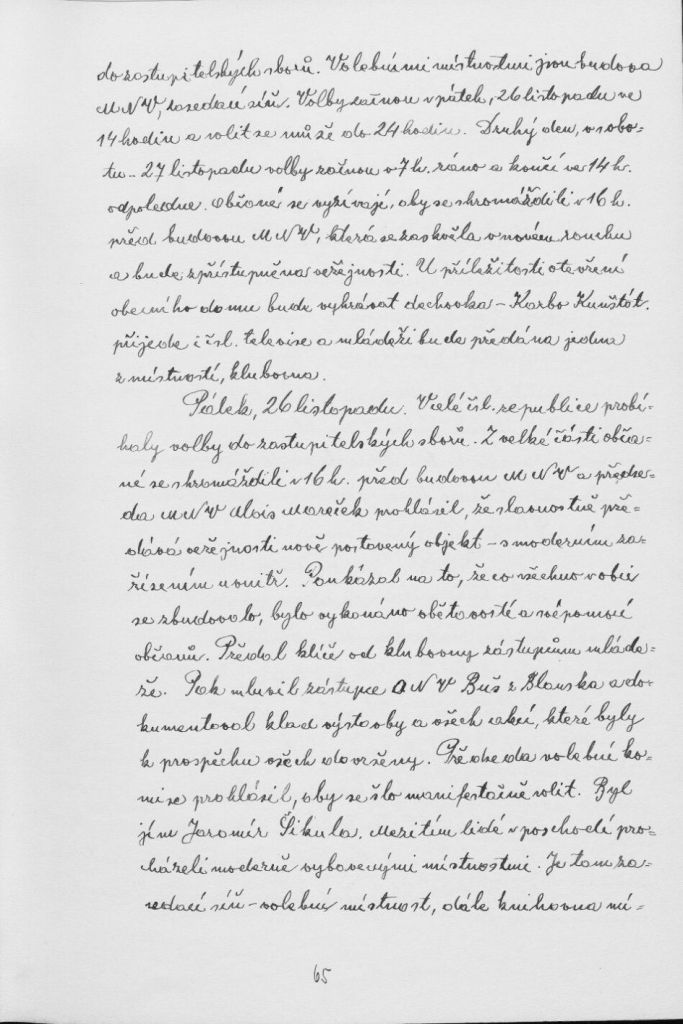 do zastupitelských sborů. Volebními místnostmi jsou budova
MNV, zasedací síň. Volby začnou v pátek, 26 listopadu ve
14 hodin a volit se může do 24 hodin. Druhý den, v sobo-
tu - 27 listopadu volby začnou v 7 h. ráno a končí ve 14 h.
odpoledne. Občané se vyzívají, aby se shromáždili v 16 h.
před budovou MNV, která se zaskvěla v novém rouchu
a bude zpřístupněna veřejnosti. U příležitosti otevření
obecního domu bude vyhrávat dechovka - Karbo Kunštát.
přijede i čsl. televise a mládeži bude předána jedna
z místností, klubovna.
Pátek, 26 listopadu. V celé čsl. republice probí-
haly volby do zastupitelských sborů. Z velké části obča-
né se shromáždili v 16 h. před budovou MNV a předse-
da MNV Alois Mareček prohlásil, že slavnostně pře-
dává veřejnosti nově postavený objekt - s moderním za-
řízením uvnitř. Poukázal na to, že co všechno v obci
se zbudovalo, bylo vykonáno obětavostí a svépomocí
občanů. Předal klíče od klubovny zástupcům mláde-
že. Pak mluvil zástupce ONV Buš z Blanska a do-
kumentoval klad výstavby a všech akcí, které byly
k prospěchu všech dovršeny. Předseda volební ko-
mise prohlásil, aby se šlo manifestačně volit. Byl
jím Jaromír Šikula. Mezitím lidé v poschodí pro-
cházeli moderně vybavenými místnostmi. Je tam za-
sedací síň - volební místnost, dále knihovna mí-
65